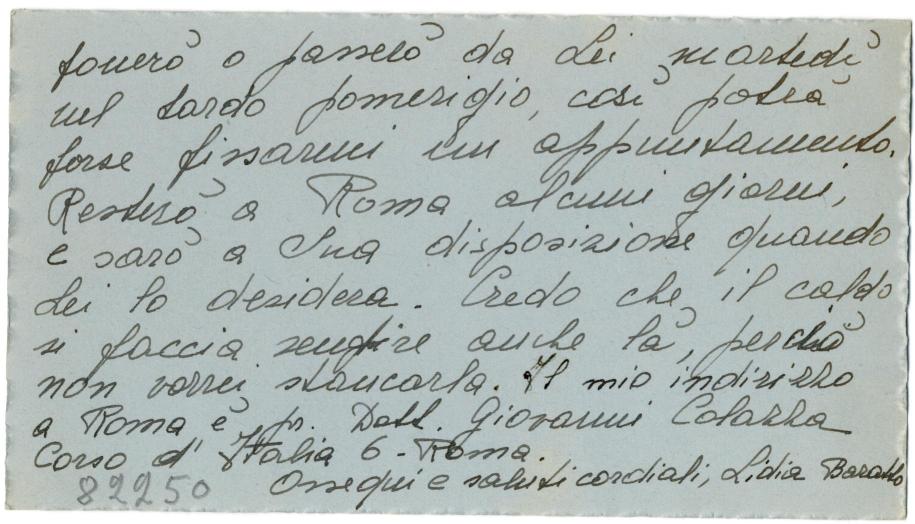 fonerò o passerò da Lei martedì
nel tardo pomerigio, così potrà
forse fissarmi un appuntamento.
Resterò a Roma alcuni giorni,
e sarò a Sua disposizione quando
Lei lo desidera. Credo che il caldo
si faccia sentire anche là, perciò
non vorrei stancarla. Il mio indirizzo
a Roma è pr. Dott. Giovanni Colazza
Corso d'Italia 6 - Roma.
Ossequi e saluti cordiali, Lidia
82250